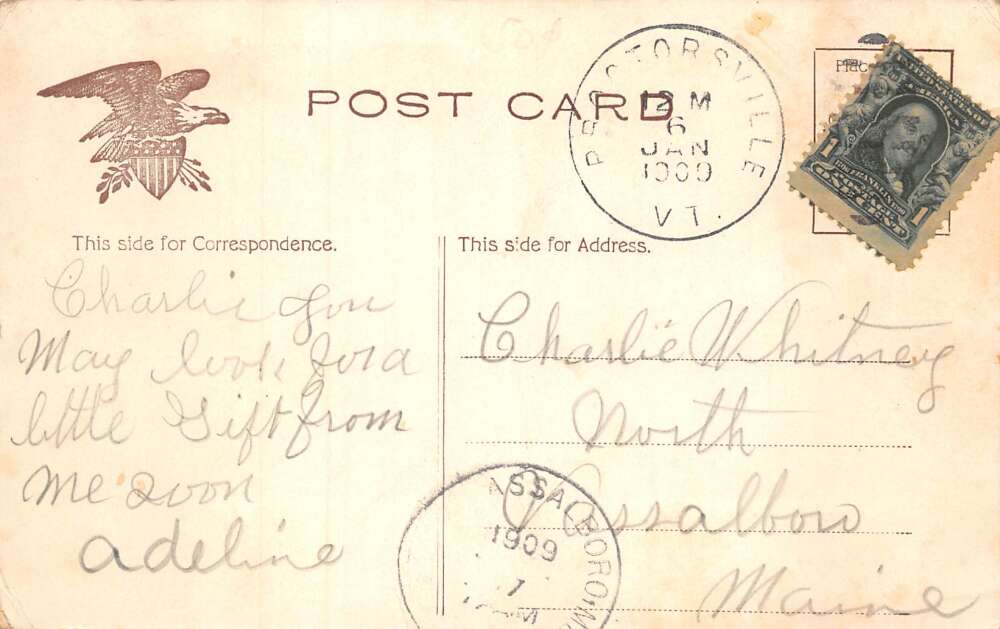 POST CARD
PROCTORSVILLE
12 M
6
JAN
1909
VT.
Plac
1 1
FRANKLIN
POSTAGE
ONE CENT
This side for Correspondence.
Charlie you
May look for a
little Gift from
me soon
Adeline
This side for Address.
Charlie Whitney
North
Vassalboro
Maine
VASSALBORO, ME
1909